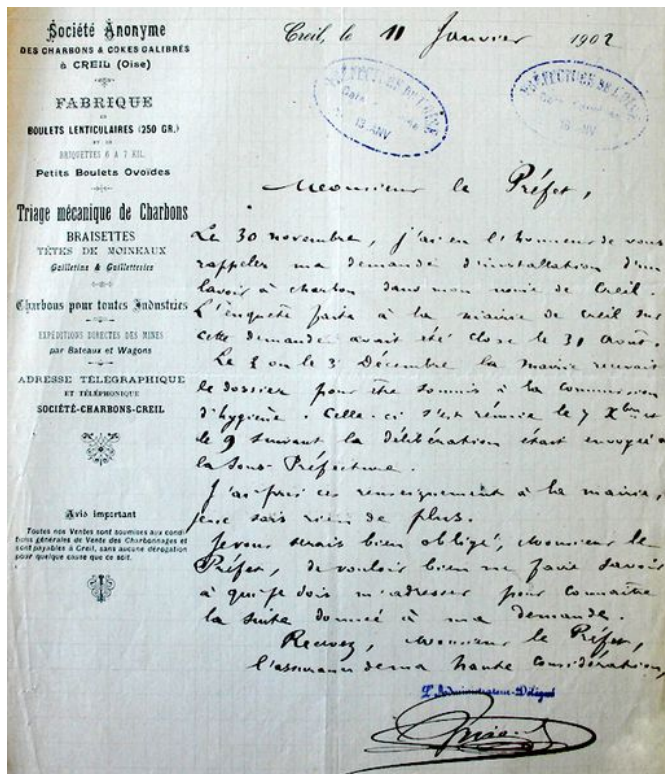 Société Anonyme
DES CHARBONS & COKES CALIBRÉS
à CREIL (Oise)
FABRIQUE
DE
BOULETS LENTICULAIRES (250 GR.)
ET DE
BRIQUETTES 6 A 7 KIL.
Petits Boulets Ovoïdes
Triage mécanique de Charbons
BRAISETTES
TÊTES DE MOINEAUX
Gailletins & Gailletteries
Charbons pour toutes Industries
EXPÉDITIONS DIRECTES DES MINES
par Bateaux et Wagons
ADRESSE TÉLÉGRAPHIQUE
ET TÉLÉPHONIQUE
SOCIÉTÉ-CHARBONS-CREIL
Avis important
Toutes nos Ventes sont soumises aux condi-
tions générales de Vente des Charbonnages et
sont payables à Creil, sans aucune dérogation
pour quelque cause que ce soit.
Creil, le 11 Janvier 1902
PRÉFECTURE DE L'OISE
PRÉFECTURE DE L'OISE
Monsieur le Préfet,
Le 30 novembre, j'ai eu l'honneur de vous
rappeler ma demande d'installation d'un
lavoir à charbon dans mon usine de Creil.
L'enquête faite à la mairie de Creil sur
cette demande avait été close le 31 Août.
Le 2 ou le 3 Décembre la mairie recevait
le dossier pour être soumis à la commission
d'hygiène. Celle-ci s'est réunie le 7 Xbre et
le 9 suivant la délibération était envoyée à
la Sous-Préfecture.
J'ai pris ces renseignements à la mairie,
je ne sais rien de plus.
Je vous serais bien obligé, Monsieur le
Préfet, de vouloir bien me faire savoir
à qui je dois m'adresser pour connaître
la suite donnée à ma demande.
Recevez, Monsieur le Préfet,
l'assurance de ma haute considération,
L'Administrateur-Délégué